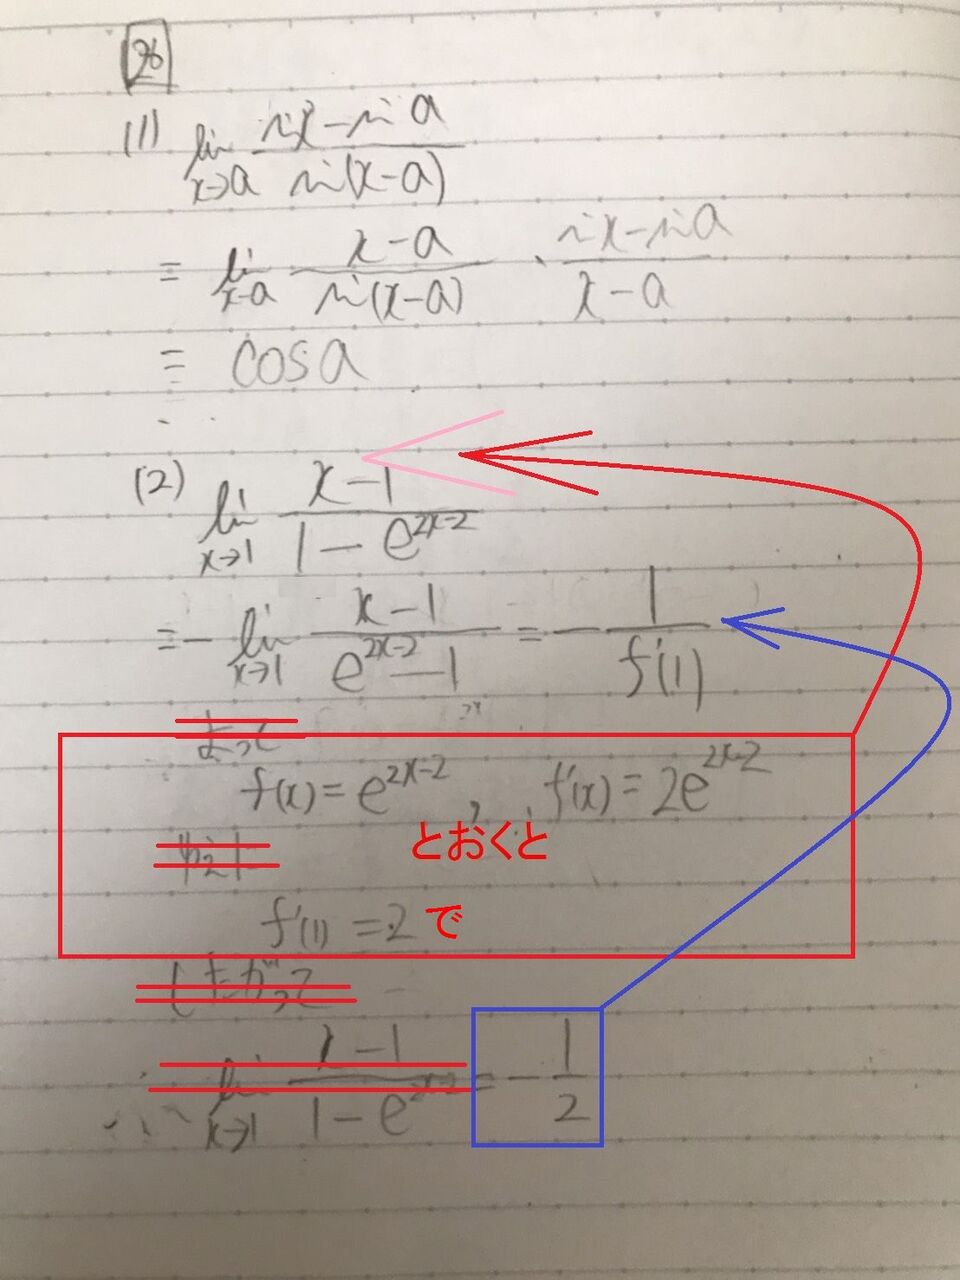 26
(1) lim x→a (sin x - sin a)/(sin(x-a))
= lim x→a (x-a)/(sin(x-a)) ・ (sin x - sin a)/(x-a)
= cos a
(2) lim x→1 (x-1)/(1-e^{2x-2})
= - lim x→1 (x-1)/(e^{2x-2}-1) = - 1/f'(1)
よって
f(x) = e^{2x-2}, f'(x) = 2e^{2x-2}
とおくと
ゆえに
f'(1) = 2 で
したがって
∴ lim x→1 (x-1)/(1-e^{2x-2}) = - 1/2